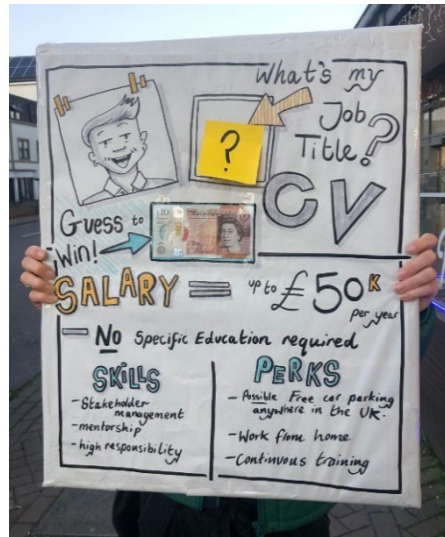 What's my
Job
Title?
?
CV
Guess to
Win!
£10
SALARY = up to £50K
per year
— No Specific Education required
SKILLS
- Stakeholder
management
- mentorship
- high responsibility
PERKS
- Possible Free car parking
anywhere in the UK.
- Work from home
- Continuous training